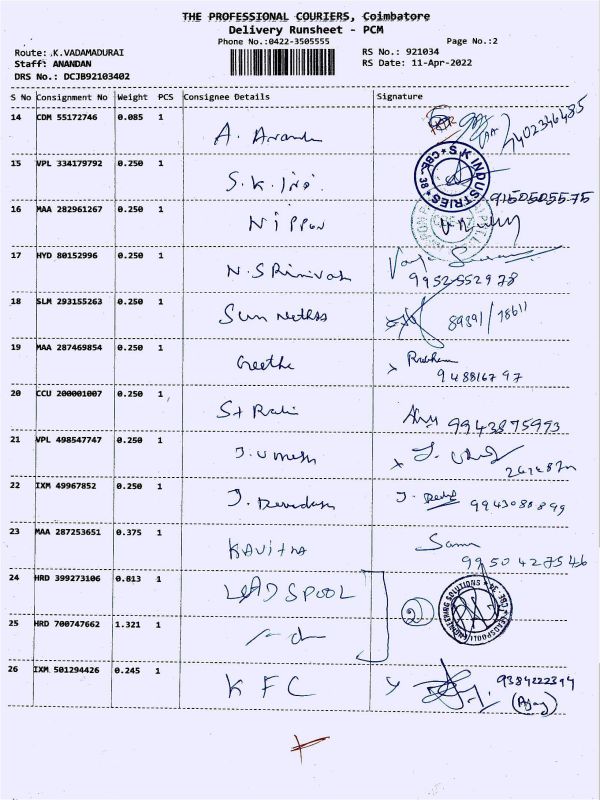 THE PROFESSIONAL COURIERS, Coimbatore
Delivery Runsheet - PCM
Phone No.:0422-3505555 Page No.:2
Route: .K.VADAMADURAI RS No.: 921034
Staff: ANANDAN RS Date: 11-Apr-2022
DRS No.: DCJB92103402
S No Consignment No Weight PCS Consignee Details Signature
14 CDM 55172746 0.085 1 A. Anandn 7402346485
15 VPL 334179792 0.250 1 S.K. Ind. S.K INDUSTRIES CBE-38 9150505575
16 MAA 282961267 0.250 1 Nippon
17 HYD 80152996 0.250 1 N.Srinivash 9952552978
18 SLM 293155263 0.250 1 Sun 89391/78611
19 MAA 287469854 0.250 1 Geetha 948816797
20 CCU 200001007 0.250 1 9943875993
21 VPL 498547747 0.250 1 J.Umesh
22 IXM 49967852 0.250 1 J. Devadash J. 9943088899
23 MAA 287253651 0.375 1 Kavitha 9950427546
24 HRD 399273106 0.813 1 LEADSPOOL 2
25 HRD 700747662 1.321 1
26 IXM 501294426 0.245 1 KFC 9384222314
(Ajay)